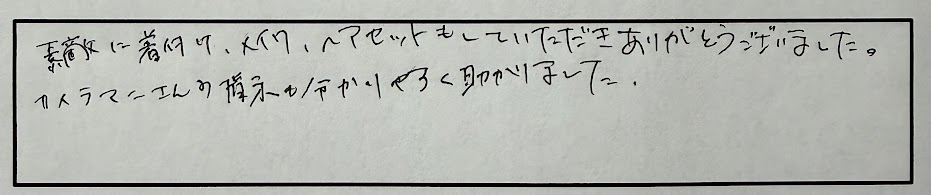 素敵に着付け、メイク、ヘアセットもしていただきありがとうございました。
カメラマンさんの指示も分かりやすく助かりました.